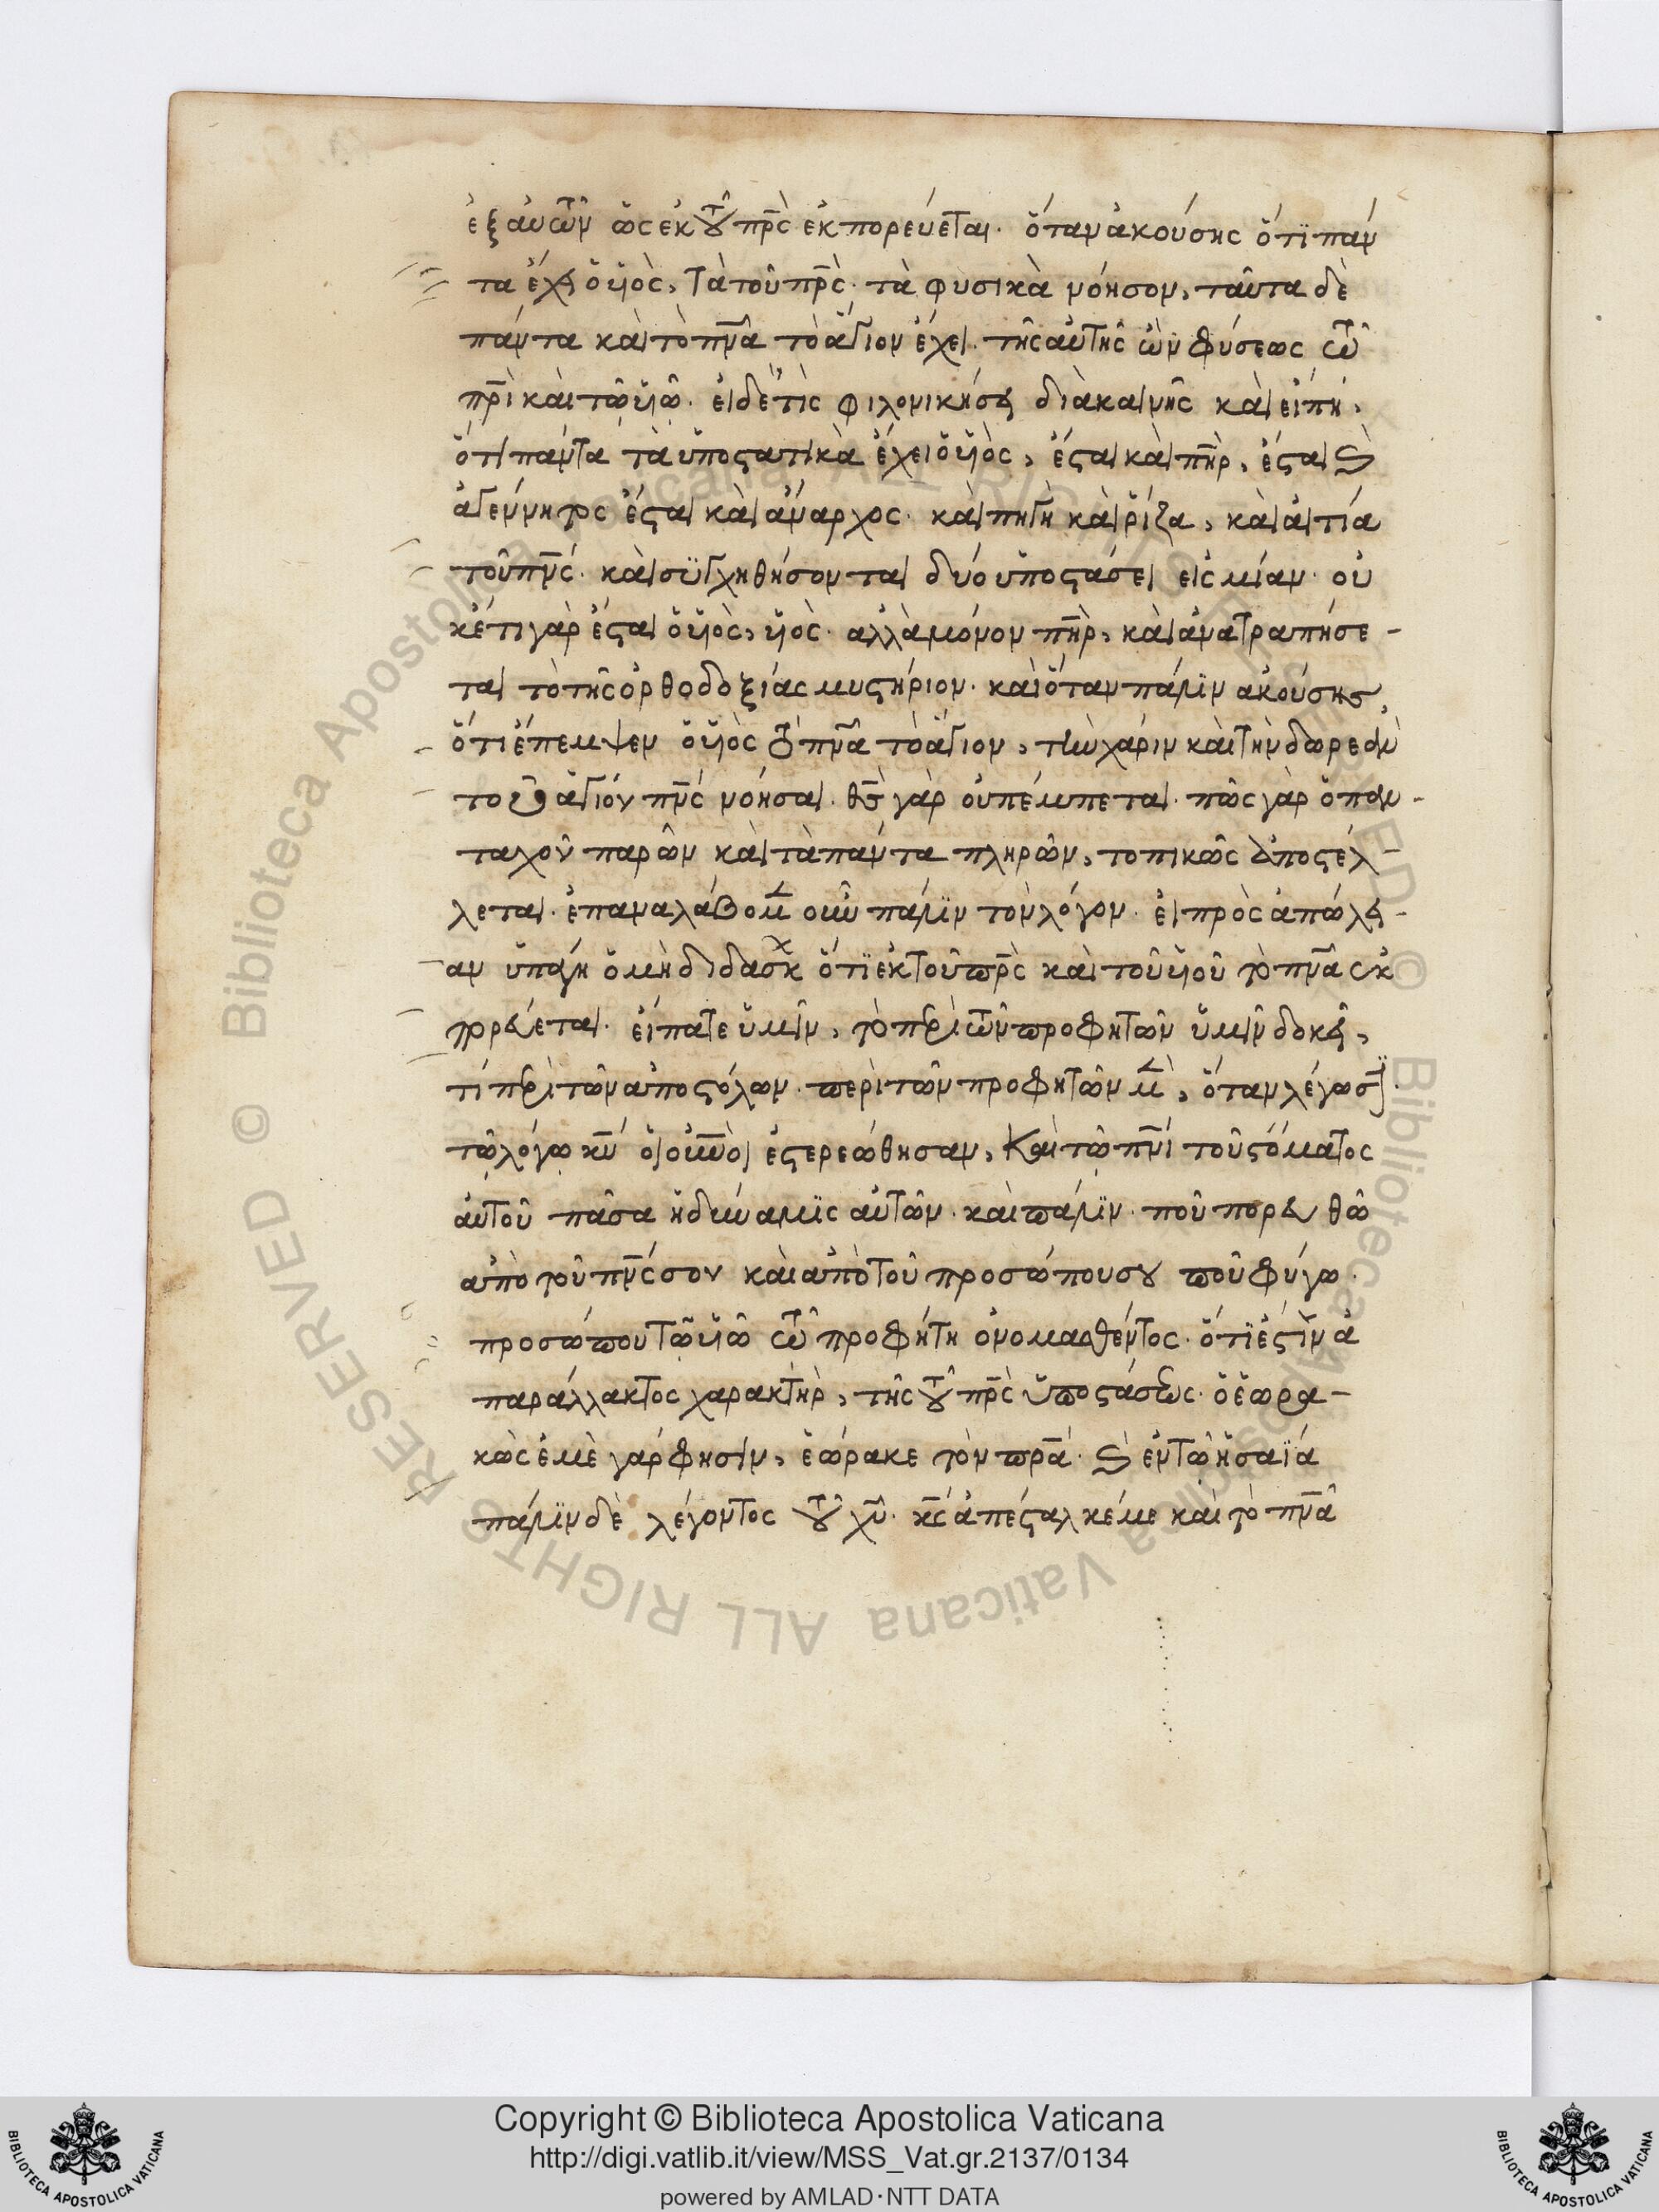 ἐξ αὐτῶν ὡς ἐκ τοῦ πρ̅ς ἐκπορεύεται· ὅταν ἀκούσης ὅτι πάν
τα ἔχει ὁ υἱὸς, τὰ τοῦ πρ̅ς· τὰ φυσικὰ νόησον, ταῦτα δὲ
πάντα καὶ τὸ πν̅α τὸ ἅγιον ἔχει· τῆς αὐτῆς ὢν φύσεως τῶ
πρ̅ι καὶ τῶ υἱῶ· εἰ δέ τις φιλονικήσει διὰ καινῆς καὶ εἴπη,
ὅτι πάντα τὰ ὑποστατικὰ ἔχει ὁ υἱὸς, ἔσται καὶ πη̅ρ, ἔσται καὶ
ἀγέννητος ἔσται καὶ ἄναρχος· καὶ πηγὴ καὶ ῥίζα, καὶ αἰτία
τοῦ πν̅ς· καὶ συγχηθήσονται δύο ὑποστάσει εἰς μίαν· οὐ
κέτι γὰρ ἔσται ὁ υἱὸς, υἱὸς· ἀλλὰ μόνον πη̅ρ, καὶ ἀνατραπήσε-
ται τὸ τῆς ὀρθοδοξίας μυστήριον· καὶ ὅταν πάλιν ἀκούσης,
ὅτι ἔπεμψεν ὁ υἱὸς τὸ πν̅α τὸ ἅγιον, τὴν χάριν καὶ τὴν δωρεὰν
τοῦ ἁγίου πν̅ς νόησαι· θς̅ γὰρ οὐ πέμπεται· πῶς γὰρ ὁ παν-
ταχοῦ παρὼν καὶ τὰ πάντα πληρῶν, τοπικῶς ἀποστέλ-
λεται· ἐπαναλάβομεν οὖν πάλιν τὸν λόγον· εἰ πρὸς ἀπώλει-
αν ὑπάγη ὁ μὴ διδάσκων ὅτι ἐκ τοῦ πρ̅ς καὶ τοῦ υἱοῦ τὸ πν̅α ἐκ
πορεύεται· εἴπατε ὑμῖν, τὸ περὶ τῶν προφητῶν ὑμῖν δοκεῖ,
τί περὶ τῶν ἀποστόλων· περὶ τῶν προφητῶν μὲν, ὅταν λέγωσι·
τῶ λόγω κυ̅ οἱ οὐν̅οι ἐστερεώθησαν, Καὶ τῶ πν̅ι τοῦ στόματος
αὐτοῦ πᾶσα ἡ δύναμις αὐτῶν· καὶ πάλιν· ποῦ πορευθῶ
ἀπὸ τοῦ πν̅ς σου καὶ ἀπὸ τοῦ προσώπου σου ποῦ φύγω·
προσώπου τῶ υἱῶ τῶ προφήτη ὀνομασθέντος· ὅτι ἐστὶν ἀ
παράλλακτος χαρακτὴρ, τῆς τοῦ πρ̅ς ὑποστάσεως· ὁ ἑωρα-
κὼς ἐμὲ γάρ φησιν, ἑώρακε τὸν πρ̅α· καὶ ἐν τῶ ἡσαΐα
πάλιν δὲ λέγοντος τοῦ χυ̅· κς̅ ἀπέσταλκέ με καὶ τὸ πν̅α
Copyright © Biblioteca Apostolica Vaticana
http://digi.vatlib.it/view/MSS_Vat.gr.2137/0134
powered by AMLAD·NTT DATA